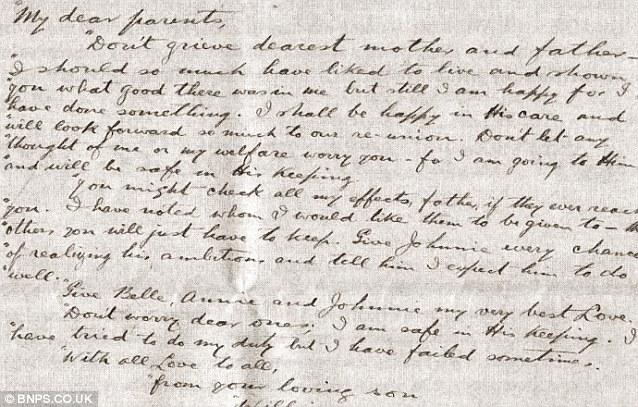 "My dear parents,
"Don't grieve dearest mother and father –
"I should so much have liked to live and shown
"you what good there was in me but still I am happy for I
"have done something. I shall be happy in His care and
"will look forward so much to our re-union. Don't let any
"thought of me or my welfare worry you – fo I am going to Him
"and will be safe in His keeping.
"You might check all my effects, father, if they ever reac
"you. I have noted whom I would like them to be given to –
"others you will just have to keep. Give Johnnie every chance
"of realizing his ambitions and tell him I expect him to do
"well.
Give Belle, Annie and Johnnie my very best Love.
"Don't worry dear ones; I am safe in His keeping. I
"have tried to do my duty but I have failed sometimes.
"With all Love to all,
"from your loving son
© BNPS.CO.UK